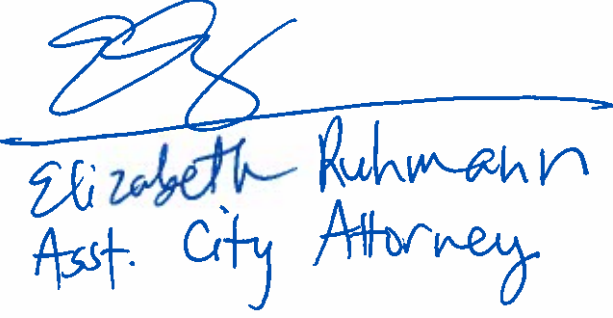 Elizabeth Ruhmann
Asst. City Attorney